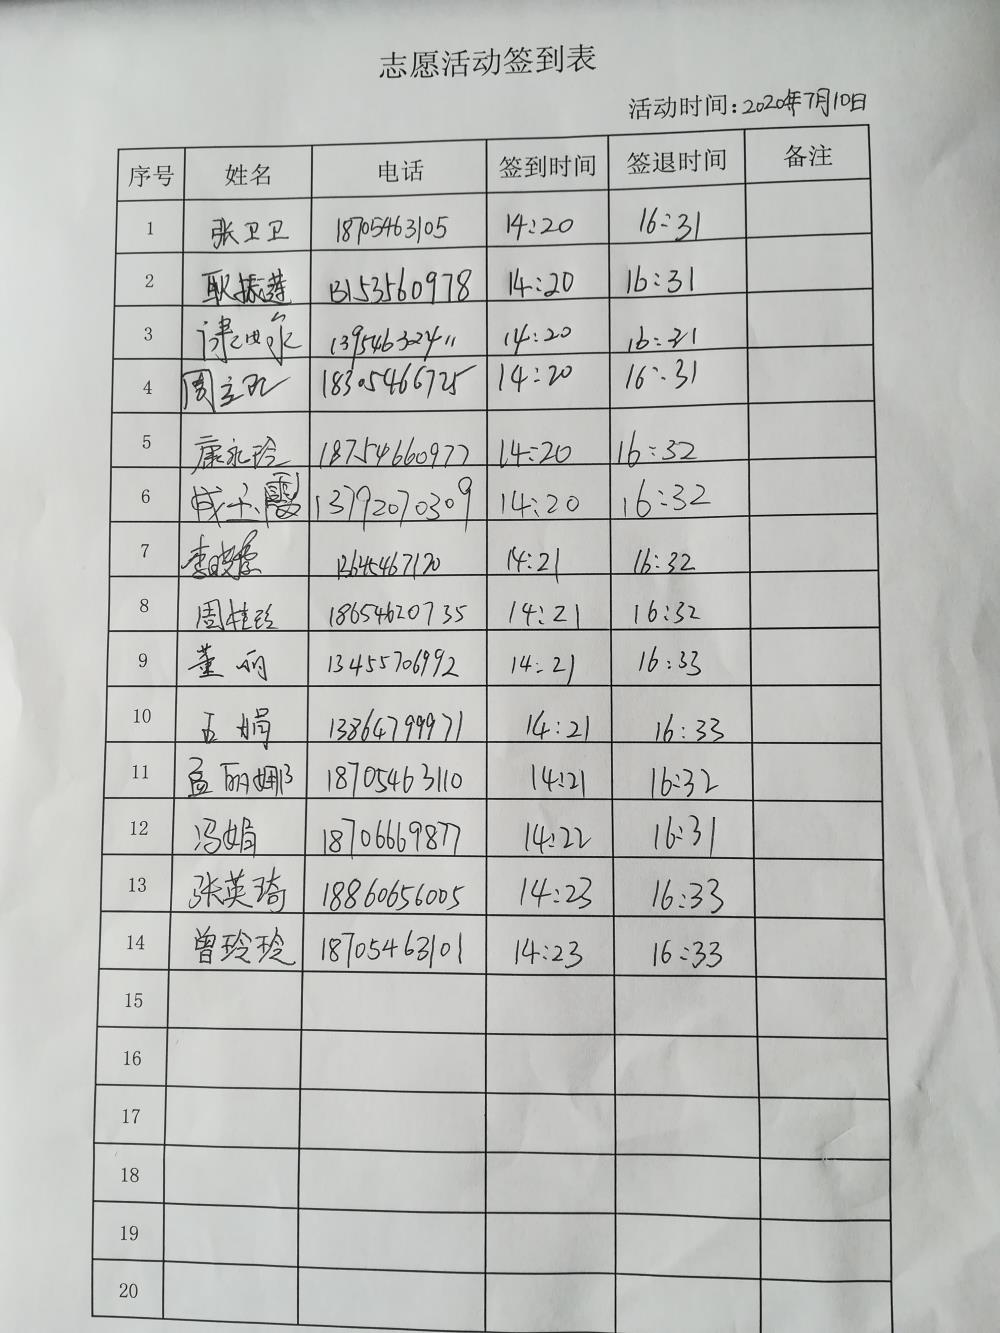 志愿活动签到表
活动时间:2020年7月10日
序号 姓名 电话 签到时间 签退时间 备注
1 张卫卫 18705463105 14:20 16:31
2 耿振莲 13153560978 14:20 16:31
3 14:20 16:31
4 18305466725 14:20 16:31
5 康永玲 18754660977 14:20 16:32
6 成玉霞 13792070309 14:20 16:32
7 李晓霞 13645467120 14:21 16:32
8 周桂珍 18654620735 14:21 16:32
9 董丽 13455706992 14:21 16:33
10 王娟 13864799971 14:21 16:33
11 孟丽娜 18705463110 14:21 16:32
12 冯娟 18706669877 14:22 16:31
13 张英琦 18860656005 14:23 16:33
14 曾玲玲 18705463101 14:23 16:33
15
16
17
18
19
20